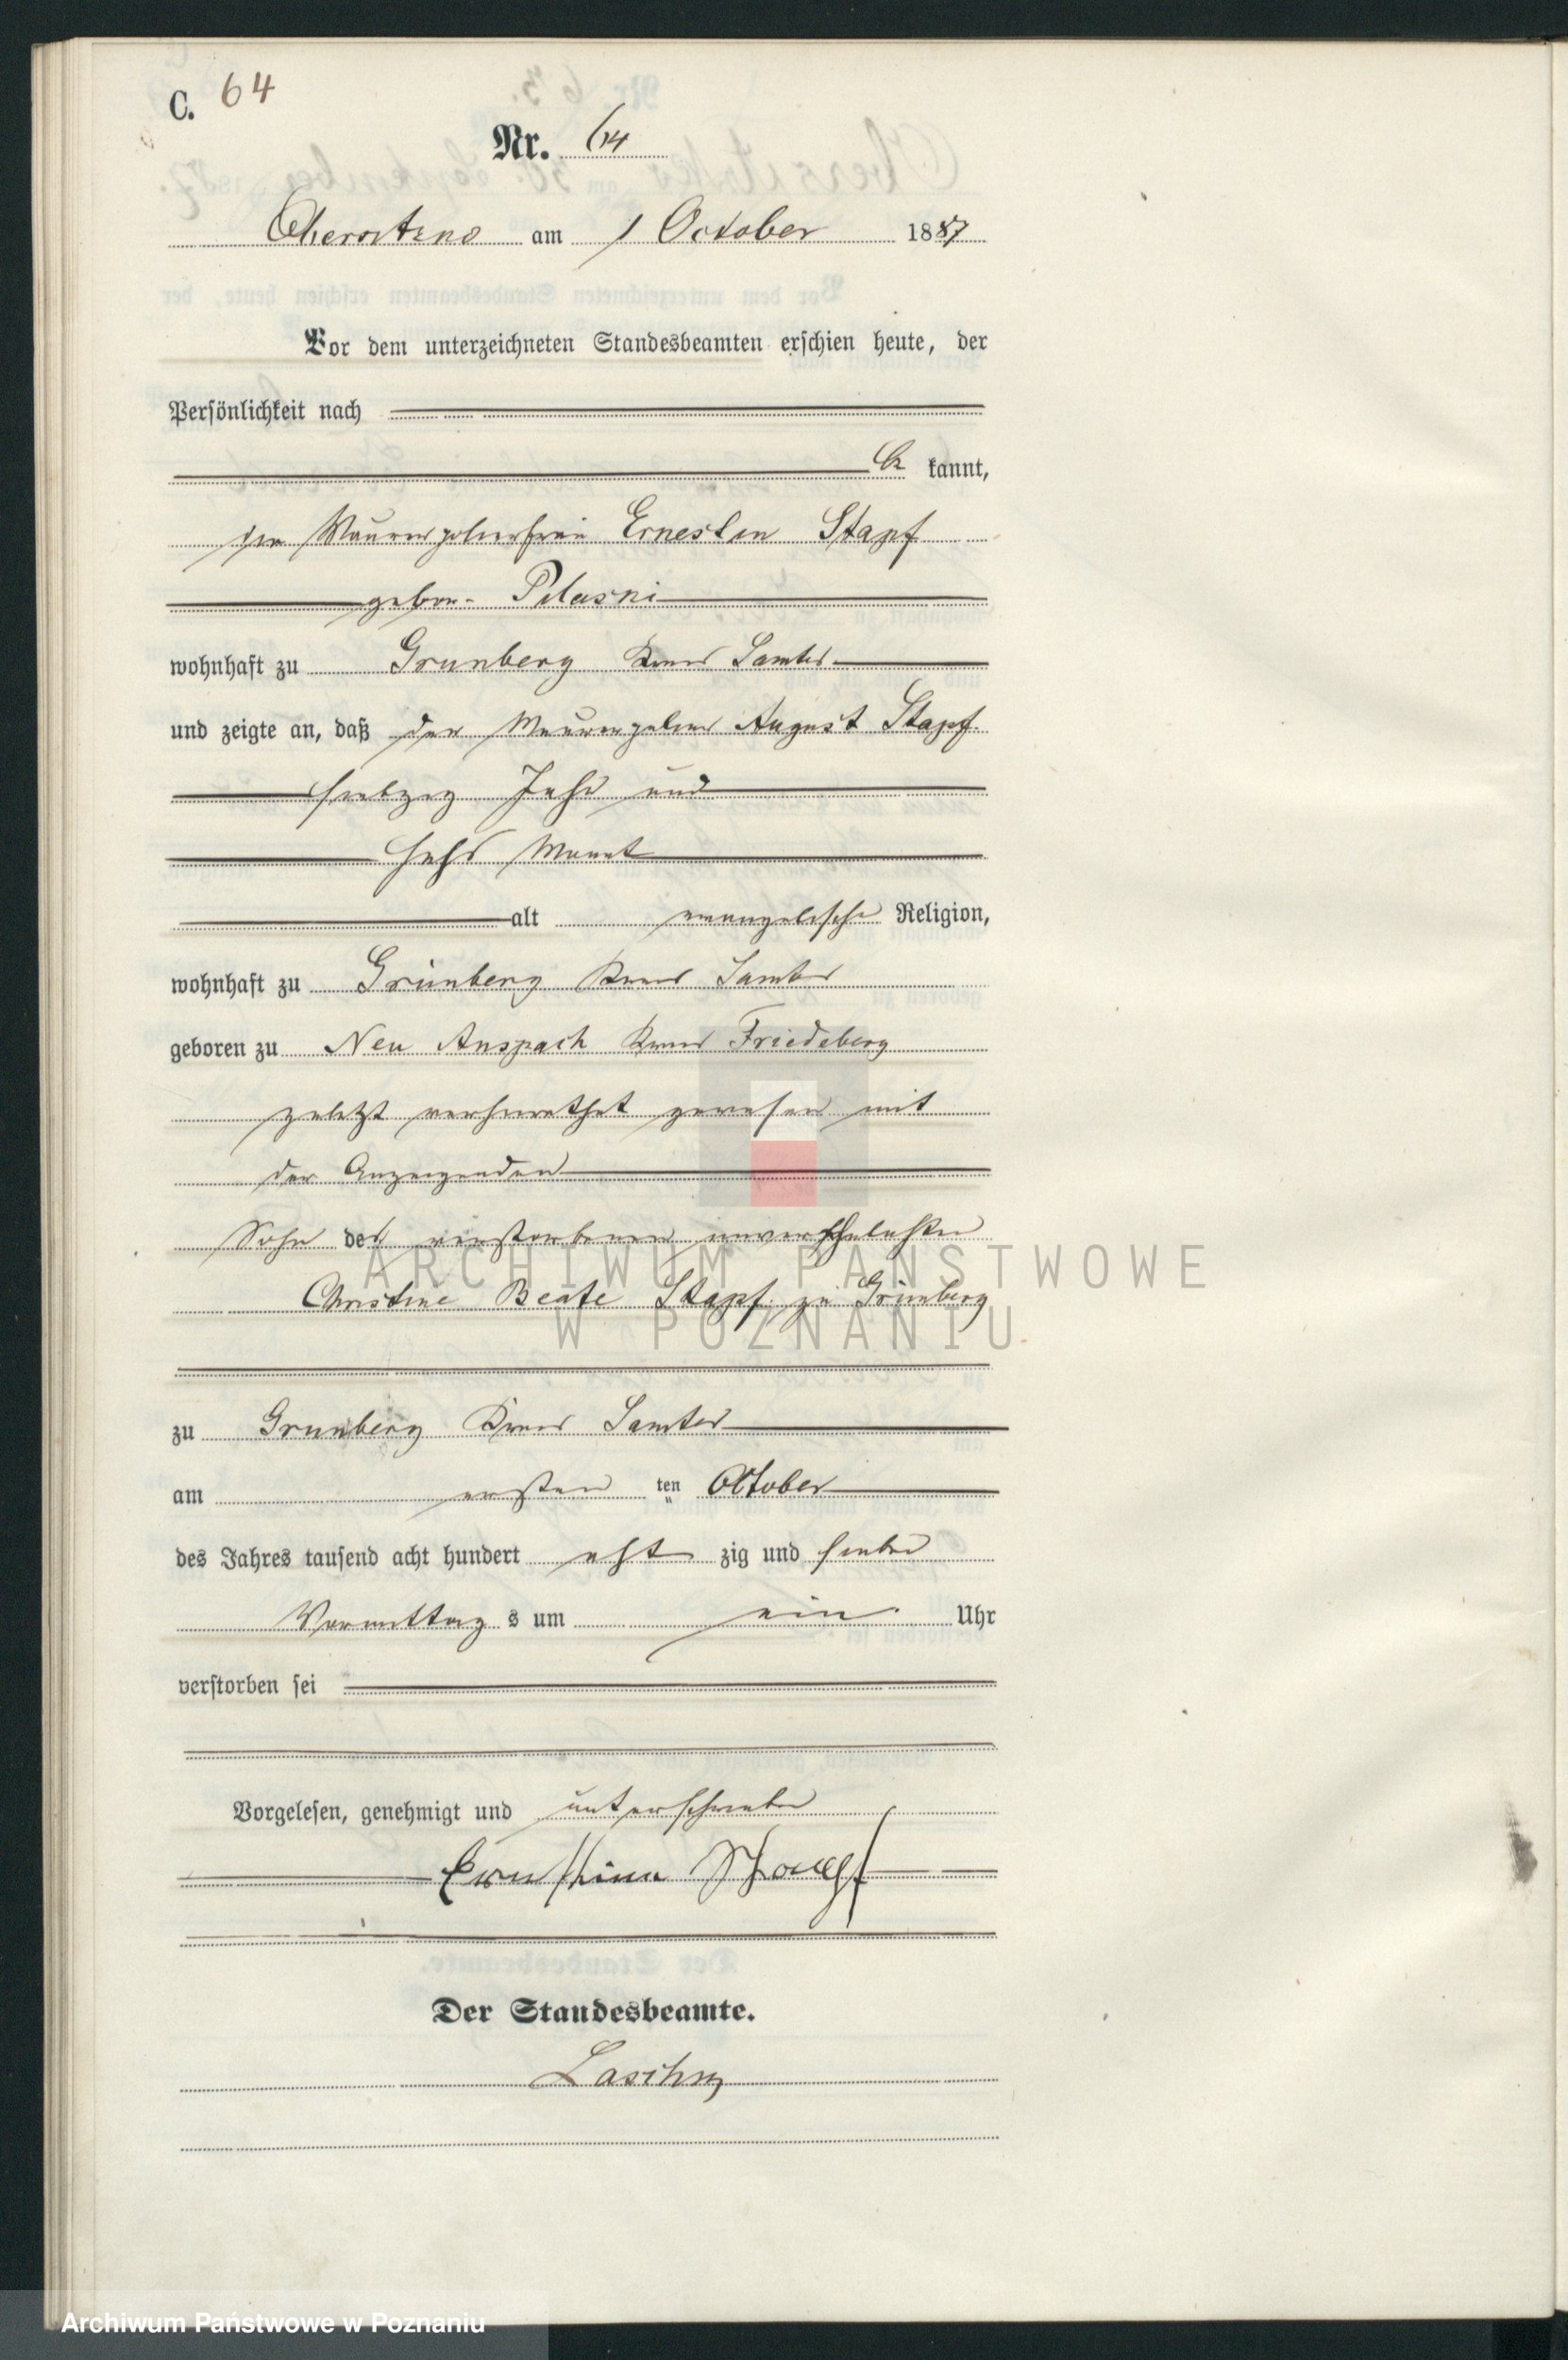 C. 64
Nr. 64
Obersitzko am 1 October 1887
Vor dem unterzeichneten Standesbeamten erschien heute, der
Persönlichkeit nach
be kannt,
die Maurerpolierfrau Ernestin Stapf
gebor.
wohnhaft zu Grünberg Kreis Samter
und zeigte an, daß der Maurerpolier August Stapf
siebzig Jahr und
sechs Monat
alt evangelische Religion,
wohnhaft zu Grünberg Kreis Samter
geboren zu Neu Anspach Kreis Friedeberg
zuletzt verheirathet gewesen mit
der Anzeigenden
Sohn der verstorbenen unverehelichten
Christine Beate Stapf zu Grünberg
ARCHIWUM PAŃSTWOWE
W POZNANIU
zu Grünberg Kreis Samter
am ersten ten October
des Jahres tausend acht hundert acht zig und sieben
Vormittag s um ein Uhr
verstorben sei
Vorgelesen, genehmigt und unterschrieben
Ernsthine Stapf
Der Standesbeamte.
Archiwum Państwowe w Poznaniu